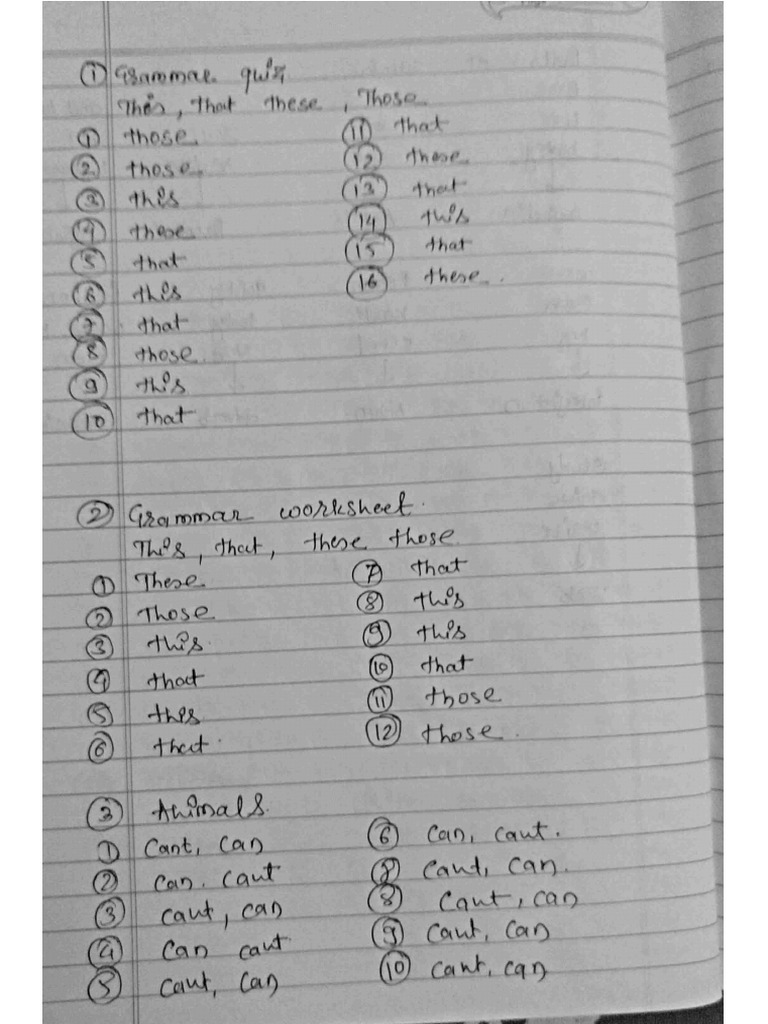 ① Grammar quiz
This, that these, Those
① those
② those
③ this
④ these
⑤ that
⑥ this
⑦ that
⑧ those
⑨ this
⑩ that
⑪ that
⑫ these
⑬ that
⑭ this
⑮ that
⑯ these.
② Grammar worksheet.
This, that, these those
① These
② Those
③ this.
④ that
⑤ this
⑥ that.
⑦ that
⑧ this
⑨ this
⑩ that
⑪ those
⑫ those.
③ Animals.
① Cant, Can
② Can. Cant
③ cant, can
④ Can cant
⑤ cant, can
⑥ can, cant.
⑧ cant, can.
⑧ cant, can
⑨ cant, can
⑩ cant, can